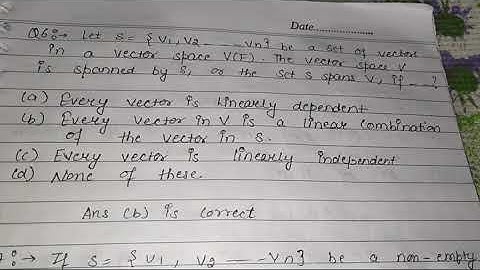 Date...................
Q6:→ Let S = {v1, v2 - - - - vn} be a set of vectors
in a vector space V(F). The vector space V
is spanned by S, or the set S spans V, if - - - ?
(a) Every vector is linearly dependent
(b) Every vector in V is a linear combination
of the vector in S.
(c) Every vector is linearly independent
(d) None of these.
Ans (b) is correct
:→ If S = {v1, v2 - - - - vn} be a non-empty